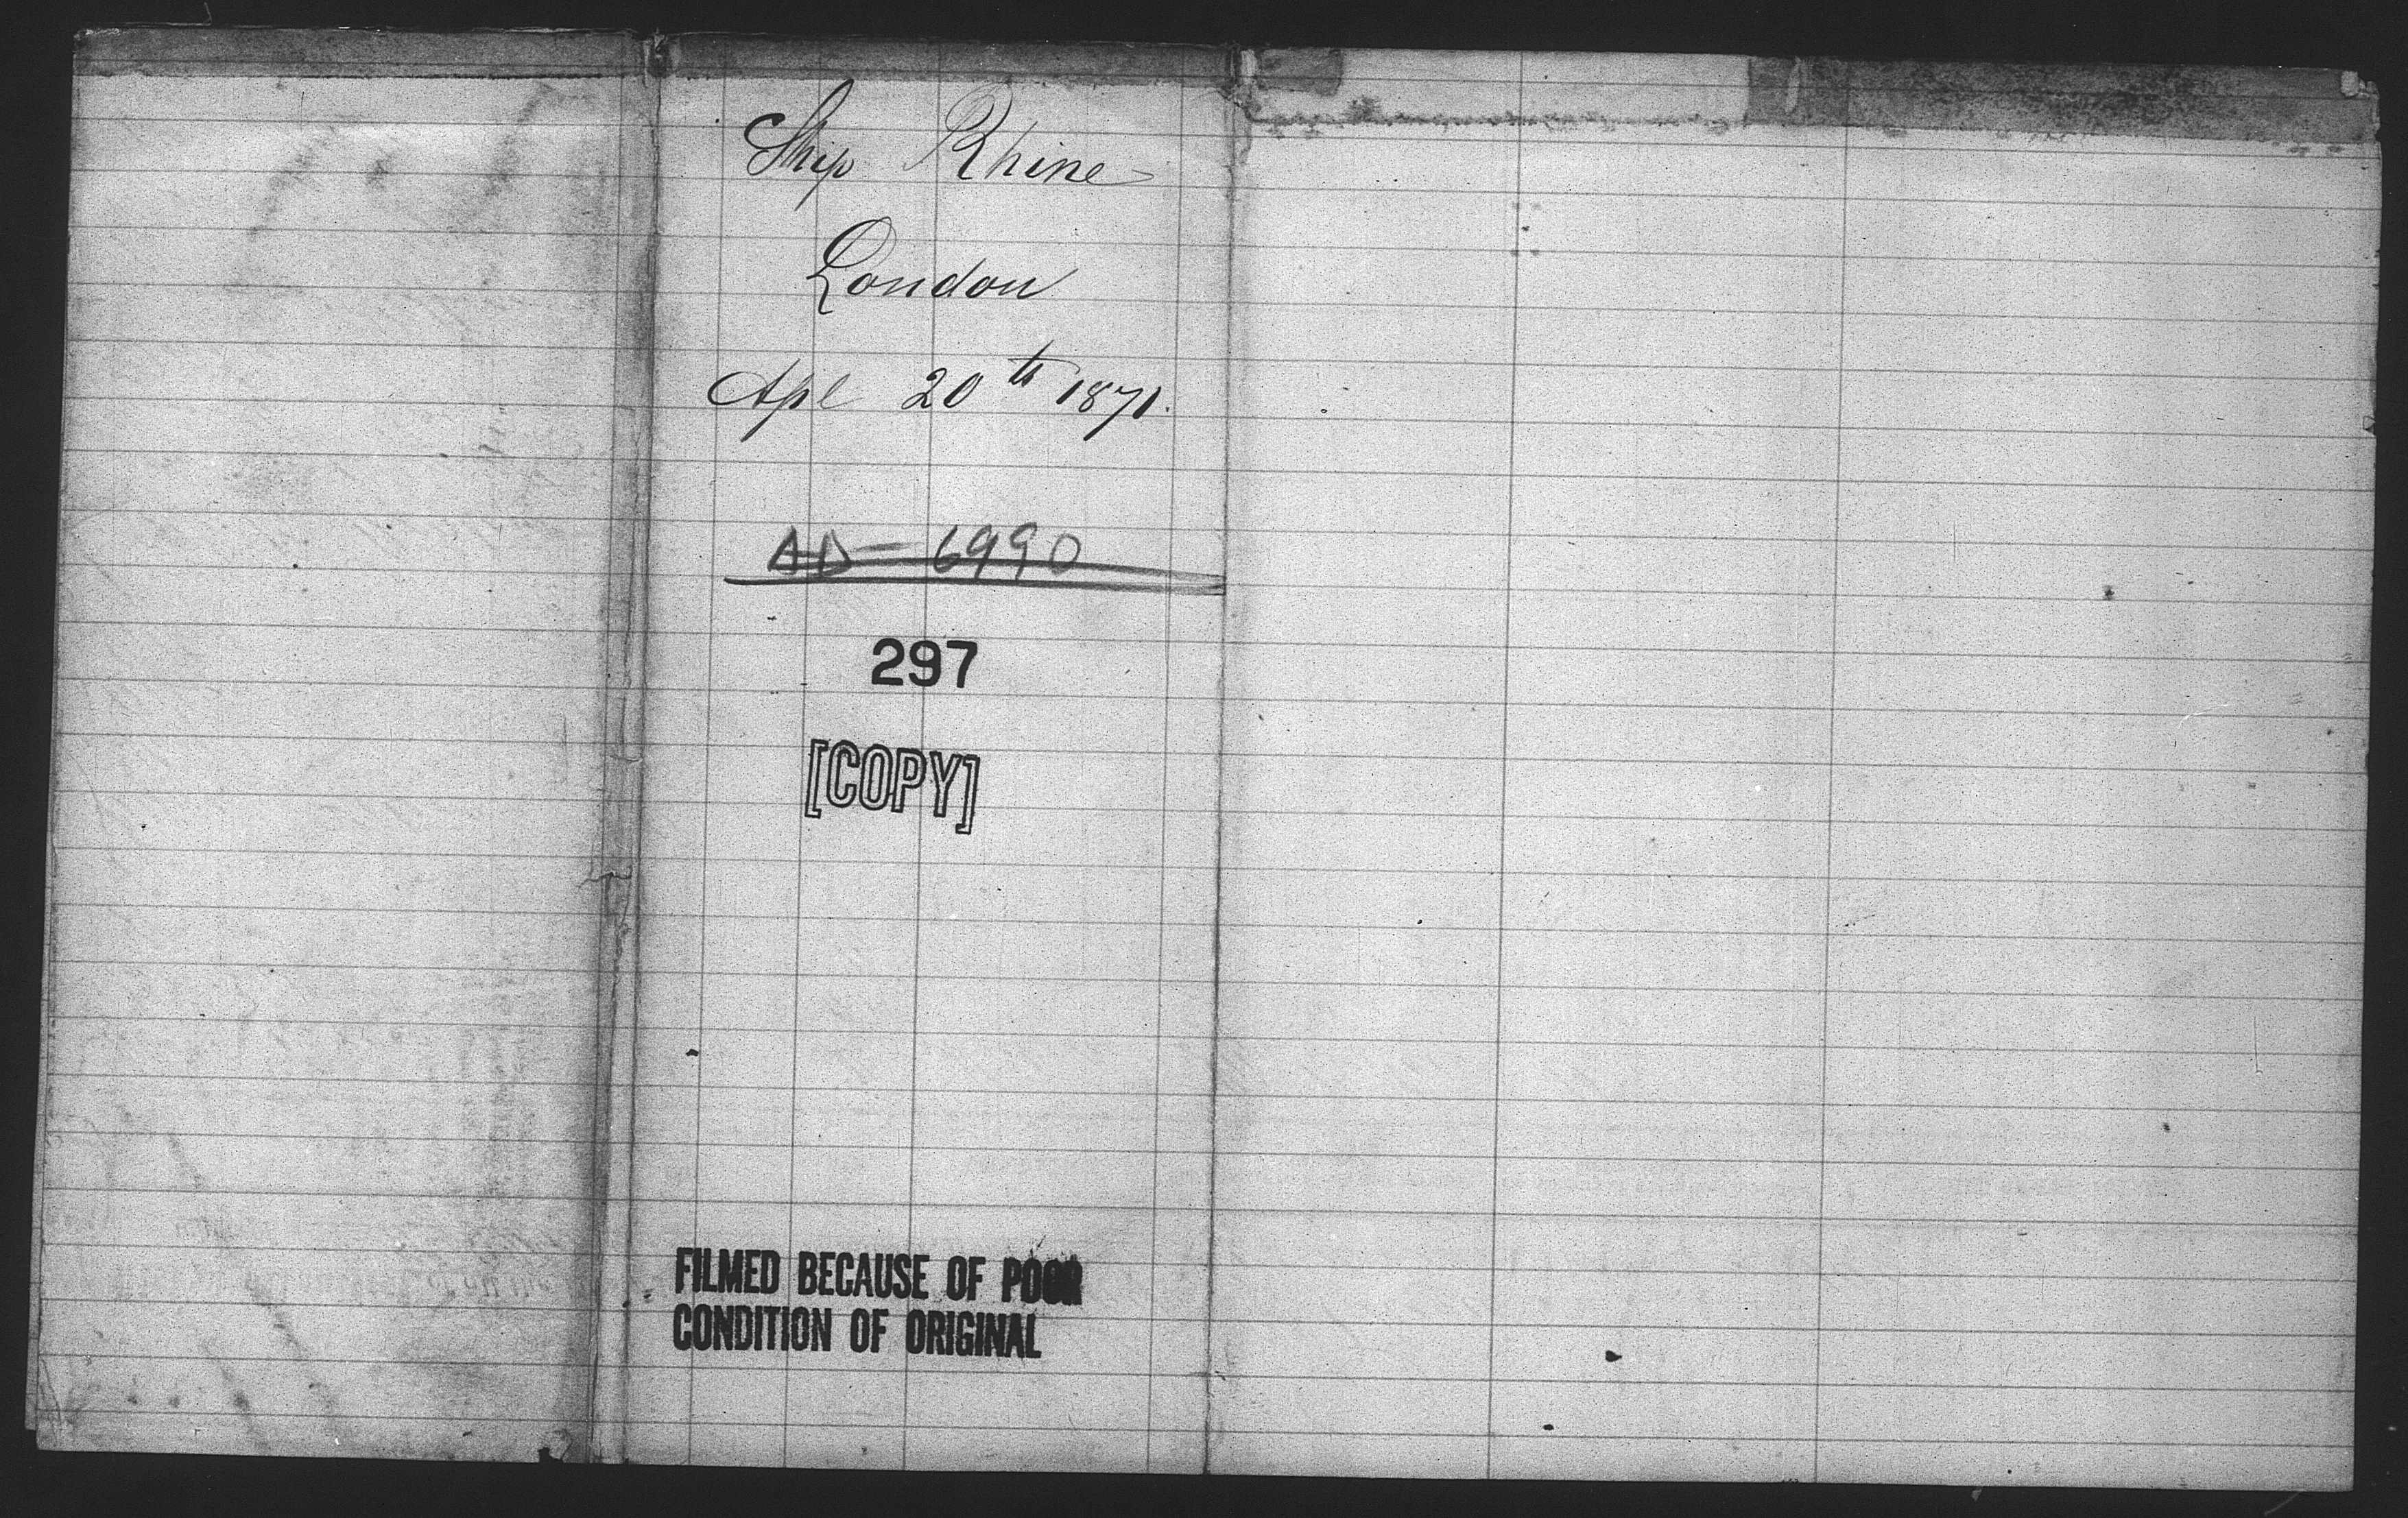 Ship Rhine
London
Apl 20th 1871.
AD- 6990
297
[COPY]
FILMED BECAUSE OF POOR
CONDITION OF ORIGINAL